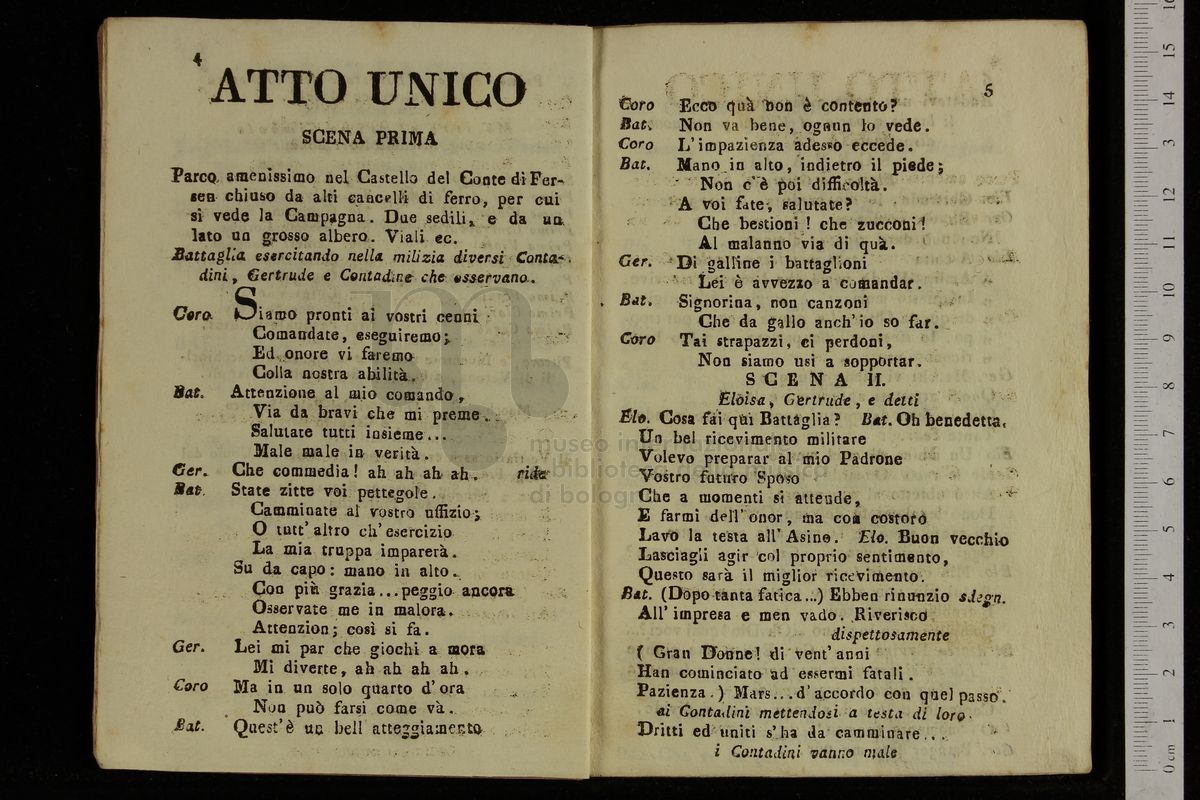 4
ATTO UNICO
SCENA PRIMA
Parco amenissimo nel Castello del Conte di Fer-
sen chiuso da alti cancelli di ferro, per cui
si vede la Campagna. Due sedili, e da un
lato un grosso albero. Viali ec.
Battaglia esercitando nella milizia diversi Conta-
dini, Gertrude e Contadine che osservano.
Coro Siamo pronti ai vostri cenni
Comandate, eseguiremo;
Ed onore vi faremo
Colla nostra abilità.
Bat. Attenzione al mio comando,
Via da bravi che mi preme..
Salutate tutti insieme...
Male male in verità.
Ger. Che commedia! ah ah ah ah. ride
Bat. State zitte voi pettegole.
Camminate al vostro uffizio;
O tutt' altro ch' esercizio
La mia truppa imparerà.
Su da capo: mano in alto.
Con più grazia...peggio ancora
Osservate me in malora.
Attenzion; così si fa.
Ger. Lei mi par che giochi a mora
Mi diverte, ah ah ah ah.
Coro Ma in un solo quarto d' ora
Non può farsi come và.
Bat. Quest' è un bell atteggiamento
5
Coro Ecco quà non è contento?
Bat. Non va bene, ognun lo vede.
Coro L' impazienza adesso eccede.
Bat. Mano in alto, indietro il piede;
Non c' è poi difficoltà.
A voi fate, salutate?
Che bestioni! che zucconi!
Al malanno via di quà.
Ger. Di galline i battaglioni
Lei è avvezzo a comandar.
Bat. Signorina, non canzoni
Che da gallo anch' io so far.
Coro Tai strapazzi, ci perdoni,
Non siamo usi a sopportar.
SCENA II.
Eloisa, Gertrude, e detti
Elo. Cosa fai qui Battaglia? Bat. Oh benedetta,
Un bel ricevimento militare
Volevo preparar al mio Padrone
Vostro futuro Sposo
Che a momenti si attende,
E farmi dell' onor, ma con costoro
Lavo la testa all' Asino. Elo. Buon vecchio
Lasciagli agir col proprio sentimento,
Questo sarà il miglior ricevimento.
Bat. (Dopo tanta fatica...) Ebben rinunzio sdegn.
All' impresa e men vado. Riverisco
dispettosamente
( Gran Donne! di vent' anni
Han cominciato ad essermi fatali.
Pazienza.) Mars...d' accordo con quel passo.
ai Contadini mettendosi a testa di loro.
Dritti ed uniti s' ha da camminare...
i Contadini vanno male
museo in
bibliote
di bologn